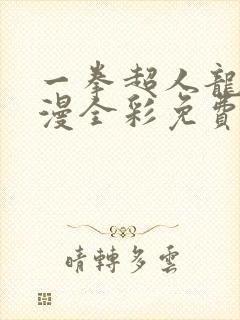 一拳超人龍
漫全彩免費
晴轉多雲